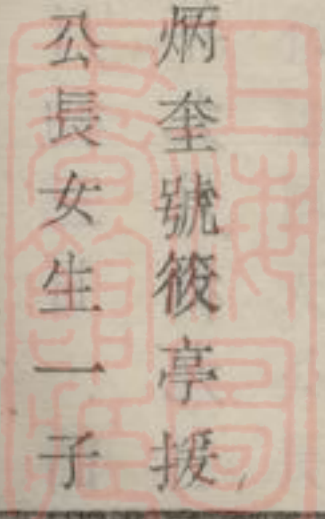 炳奎號筱亭援
公長女生一子